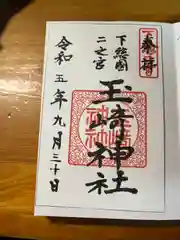 奉拝
下総國
二之宮
玉崎神社
令和五年九月三十日